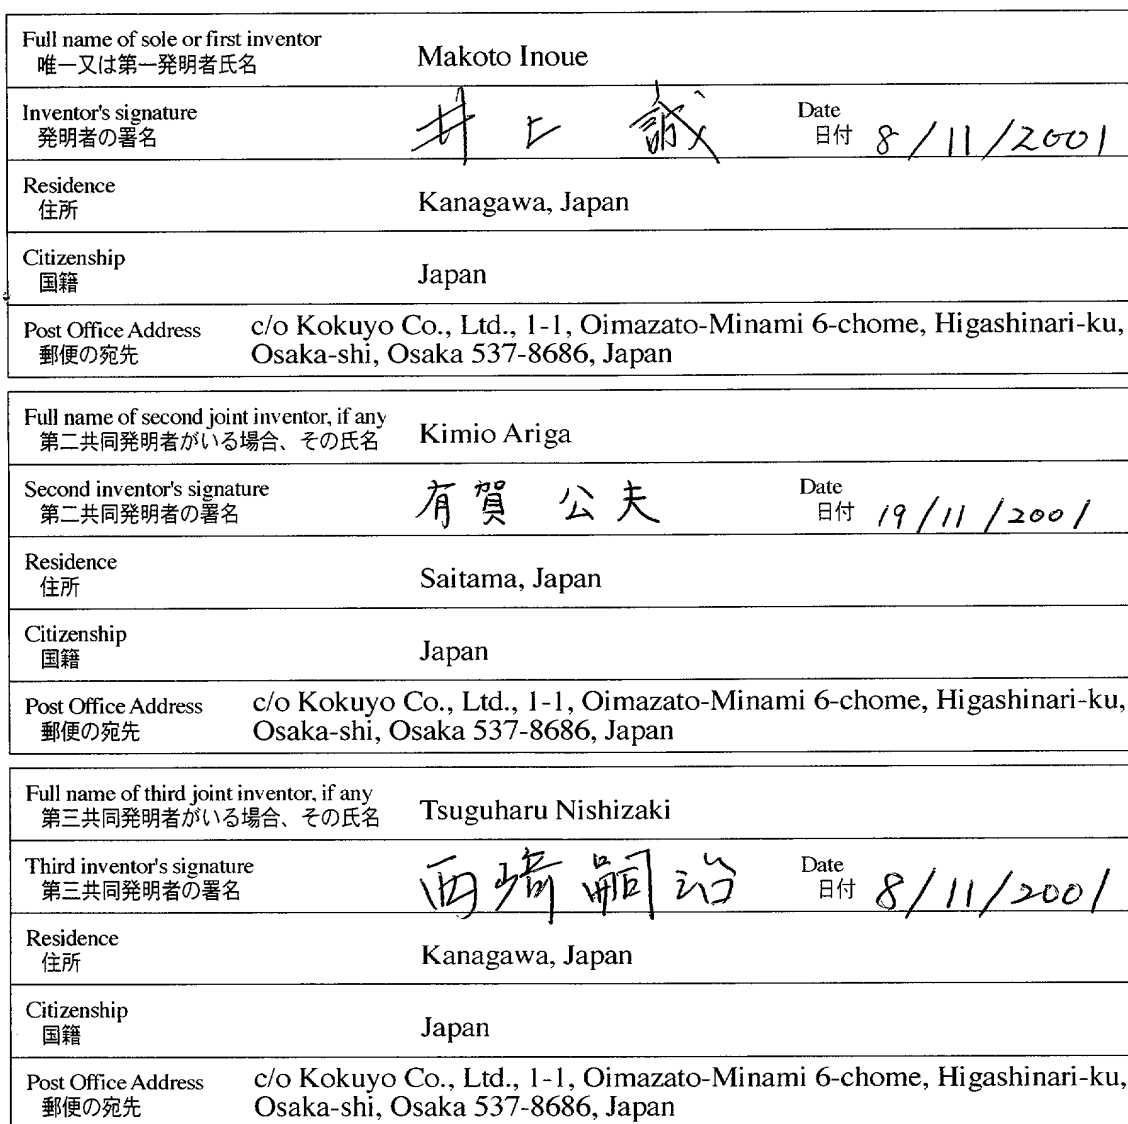 Full name of sole or first inventor
唯一又は第一発明者氏名
Makoto Inoue
Inventor's signature
発明者の署名
井上 誠
Date
日付 8/11/2001
Residence
住所
Kanagawa, Japan
Citizenship
国籍
Japan
Post Office Address
郵便の宛先
c/o Kokuyo Co., Ltd., 1-1, Oimazato-Minami 6-chome, Higashinari-ku,
Osaka-shi, Osaka 537-8686, Japan
Full name of second joint inventor, if any
第二共同発明者がいる場合、その氏名
Kimio Ariga
Second inventor's signature
第二共同発明者の署名
有賀 公夫
Date
日付 19/11/2001
Residence
住所
Saitama, Japan
Citizenship
国籍
Japan
Post Office Address
郵便の宛先
c/o Kokuyo Co., Ltd., 1-1, Oimazato-Minami 6-chome, Higashinari-ku,
Osaka-shi, Osaka 537-8686, Japan
Full name of third joint inventor, if any
第三共同発明者がいる場合、その氏名
Tsuguharu Nishizaki
Third inventor's signature
第三共同発明者の署名
西崎嗣治
Date
日付 8/11/2001
Residence
住所
Kanagawa, Japan
Citizenship
国籍
Japan
Post Office Address
郵便の宛先
c/o Kokuyo Co., Ltd., 1-1, Oimazato-Minami 6-chome, Higashinari-ku,
Osaka-shi, Osaka 537-8686, Japan